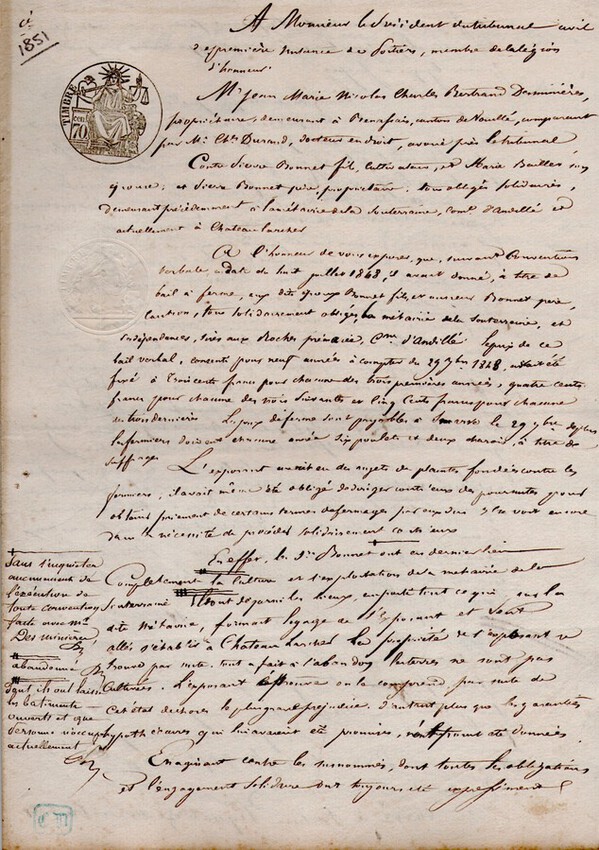 1851
A Monsieur le Président du tribunal civil
de première Instance de Poitiers, membre de la légion
d'honneur
TIMBRE
70
Mr Jean Marie Nicolas Charles Bertrand Desminières,
propriétaire, demeurant à, canton de Nouaillé, comparant
par Me Chles Durand, docteur en droit, avoué près le tribunal
Contre Pierre Bonnet fils, cultivateur, et Marie son
épouse; et Pierre Bonnet père, propriétaire. tous obligés solidaires,
demeurant précédemment à la métairie de la Souterraine, come d'Andillé et
actuellement à Chateau larcher
A l'honneur de vous exposer, que, suivant Conventions
Verbales, à date du huit juillet 1848, il avait donné, à titre de
bail à ferme, aux dits époux Bonnet fils, et au sieur Bonnet père,
caution, tous solidairement obligés, la métairie de la Souterraine, et
Indépendances, sises aux Roches, Cne d'Andillé. Le prix de ce
bail verbal, consenti pour neuf années à compter du 29 7bre 1848, avait été
fixé à Trois cents francs pour chacune des trois premières années, quatre cents
francs pour chacune des trois suivantes et Cinq Cents francs pour chacune
des trois dernières. Le prix de ferme sont payables à le 29 7bre de plus
les fermiers doivent chaque année six poulets et deux, à titre de
suffrages
L'exposant avait eu des sujets de plaintes fondés contre les
fermiers, il avait même été obligé de diriger contre eux des poursuites pour
obtenir paiement de certains termes de fermages par eux dus. Il se voit encore
dans la nécessité de procéder solidairement contre eux
En effet, les Srs Bonnet ont en dernier lieu
Complètement la Culture et l'exploitation de la métairie de la
Souterraine ils ont dégarni les lieux, emporté tout ce qui, sur la
dite Métairie, formait le gage de l'exposant et sont
allés s'établir à Chateau Larcher. La propriété de l'exposant se
trouve par suite, tout à fait à l'abandon. Les terres ne sont pas
Cultivées. L'exposant éprouve on le comprend, par suite de
Cet état de choses le plus grave préjudice. d'autant plus que les garanties
hypothécaires qui lui avaient été promises, n'ont point été données
En agissant contre les susnommés, dont toutes les obligations
et l'engagement solidaire ont toujours été expressément
Sans s'inquiéter
aucunement de
l'exécution de
toute convention
faite avec Mr
Desminières
abandonné
dont ils ont laissé
les batiments
ouverts et que
personne n'occupe
actuellement